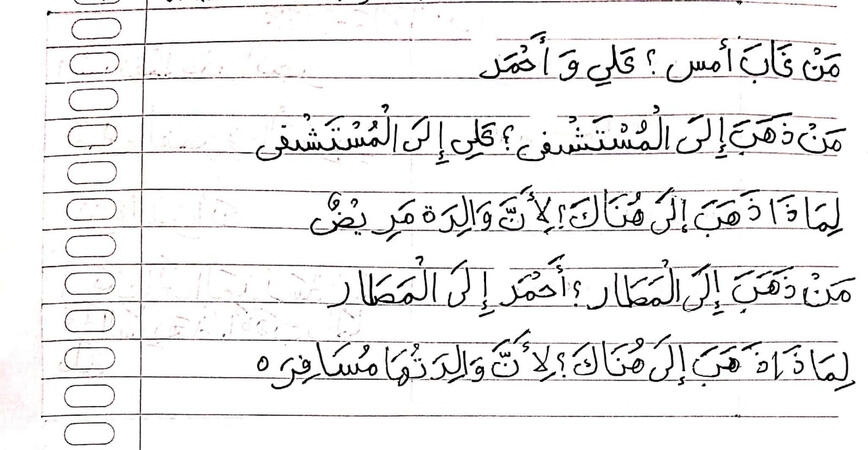 مَنْ غَابَ أمس ؟ عَلي وَ أَحْمَد
مَنْ ذَهَبَ إِلىَ الْمُسْتَشْفى ؟ عَلِي إِلىَ الْمُسْتَشْفى
لِمَاذَا ذَهَبَ إلىَ هُنَاكَ؟ لِأَنَّ وَالِدَة مَرِيْضٌ
مَنْ ذَهَبَ إِلىَ الْمَطَار ؟ أَحْمَد إِلىَ الْمَطَار
لِمَاذَا ذَهَبَ إلىَ هُنَاكَ؟ لِأَنَّ وَالِدَتُهَا مُسَافِرَه